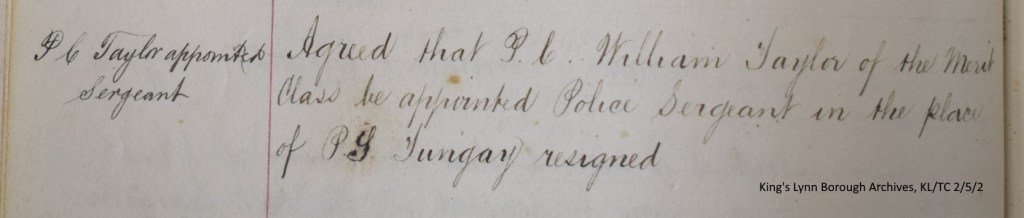 P C Taylor appointed
Sergeant
Agreed that P. C. William Taylor of the Merit
Class be appointed Police Sergeant in the place
of P.S Tungay resigned
King's Lynn Borough Archives, KL/TC 2/5/2